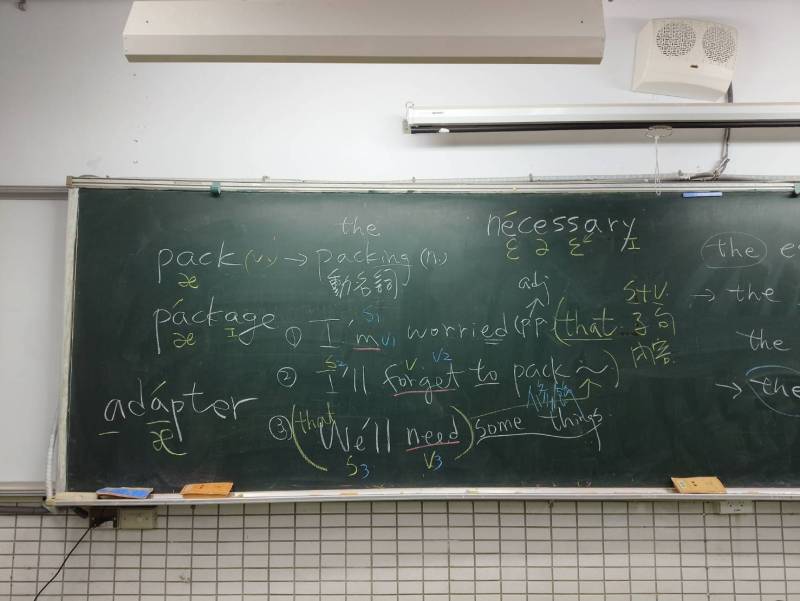 pack (v.) → the packing (n.)
動名詞
æ
páckage
æ I
adápter
æ
nécessary
ɛ ə ɛ I
adj
① I'm worried (pp.) (that 子句
S1 V1
S+V
內容
② I'll forget to pack ~)
S2 V V2
③ (that We'll need) some things.
S3 V3
the e
→ the
the
→ the